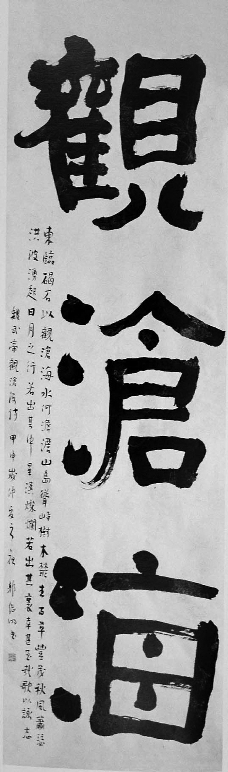 觀滄海
東臨碣石以觀滄海水河澹澹山島聳峙樹木叢生百草豐茂秋風蕭瑟
洪波湧起日月之行若出其中星漢燦爛若出其裏幸甚至哉歌以詠志
魏武帝觀滄海詩 甲申歲仲夏